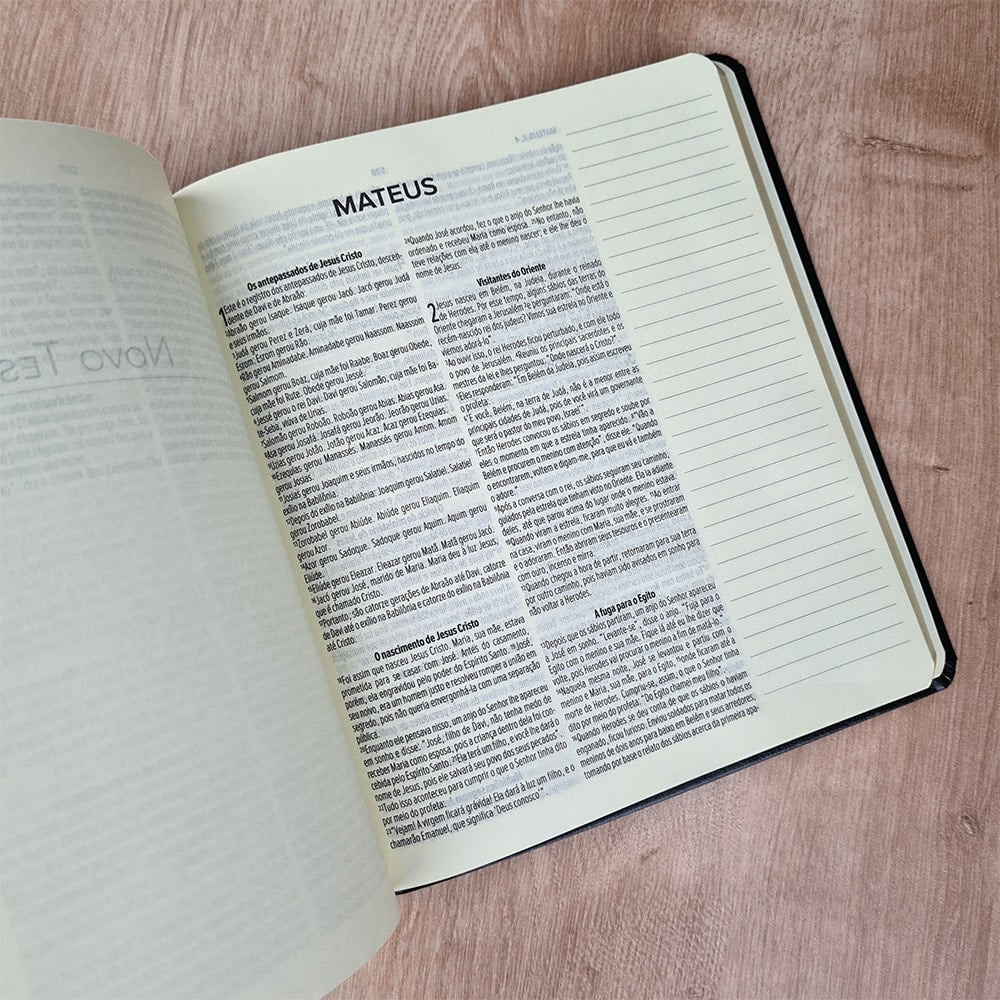 MATEUS
Os antepassados de Jesus Cristo
1 Este é o registro dos antepassados de Jesus Cristo, descen-
dente de Davi e de Abraão:
²Abraão gerou Isaque. Isaque gerou Jacó. Jacó gerou Judá
e seus irmãos.
³Judá gerou Perez e Zerá, cuja mãe foi Tamar. Perez gerou
Esrom. Esrom gerou Rão.
⁴Rão gerou Aminadabe. Aminadabe gerou Naassom. Naassom
gerou Salmom.
⁵Salmom gerou Boaz, cuja mãe foi Raabe. Boaz gerou Obede,
cuja mãe foi Rute. Obede gerou Jessé.
⁶Jessé gerou o rei Davi. Davi gerou Salomão, cuja mãe foi Ba-
te-Seba, viúva de Urias.
⁷Salomão gerou Roboão. Roboão gerou Abias. Abias gerou Asa.
⁸Asa gerou Josafá. Josafá gerou Jeorão. Jeorão gerou Uzias.
⁹Uzias gerou Jotão. Jotão gerou Acaz. Acaz gerou Ezequias.
¹⁰Ezequias gerou Manassés. Manassés gerou Amom. Amom
gerou Josias.
¹¹Josias gerou Joaquim e seus irmãos, nascidos no tempo do
exílio na Babilônia.
¹²Depois do exílio na Babilônia: Joaquim gerou Salatiel. Salatiel
gerou Zorobabel.
¹³Zorobabel gerou Abiúde. Abiúde gerou Eliaquim. Eliaquim
gerou Azor.
¹⁴Azor gerou Sadoque. Sadoque gerou Aquim. Aquim gerou
Eliúde.
¹⁵Eliúde gerou Eleazar. Eleazar gerou Matã. Matã gerou Jacó.
¹⁶Jacó gerou José, marido de Maria. Maria deu à luz Jesus,
que é chamado Cristo.
¹⁷Portanto, são catorze gerações de Abraão até Davi, catorze
de Davi até o exílio na Babilônia e catorze do exílio na Babilônia
até Cristo.
O nascimento de Jesus Cristo
¹⁸Foi assim que nasceu Jesus Cristo. Maria, sua mãe, estava
prometida para se casar com José. Antes do casamento,
porém, ela engravidou pelo poder do Espírito Santo. ¹⁹José,
seu noivo, era um homem justo e resolveu romper a união em
segredo, pois não queria envergonhá-la com uma separação
pública.
²⁰Enquanto ele pensava nisso, um anjo do Senhor lhe apareceu
em sonho e disse: "José, filho de Davi, não tenha medo de
receber Maria como esposa, pois a criança dentro dela foi con-
cebida pelo Espírito Santo. ²¹Ela terá um filho, e você lhe dará o
nome de Jesus, pois ele salvará seu povo dos seus pecados".
²²Tudo isso aconteceu para cumprir o que o Senhor tinha dito
por meio do profeta:
²³"Vejam! A virgem ficará grávida! Ela dará à luz um filho, e o
chamarão Emanuel, que significa 'Deus conosco'".
²⁴Quando José acordou, fez o que o anjo do Senhor lhe havia
ordenado e recebeu Maria como esposa. ²⁵No entanto, não
teve relações com ela até o menino nascer; e ele lhe deu o
nome de Jesus.
Visitantes do Oriente
2 Jesus nasceu em Belém, na Judeia, durante o reinado
de Herodes. Por esse tempo, alguns sábios das terras do
Oriente chegaram a Jerusalém ²e perguntaram: "Onde está o
recém-nascido rei dos judeus? Vimos sua estrela no Oriente e
viemos adorá-lo".
³Ao ouvir isso, o rei Herodes ficou perturbado, e com ele todo
o povo de Jerusalém. ⁴Reuniu os principais sacerdotes e os
mestres da lei e lhes perguntou: "Onde nascerá o Cristo?".
⁵Eles responderam: "Em Belém da Judeia, pois assim escreveu
o profeta:
⁶'E você, Belém, na terra de Judá, não é a menor entre as
principais cidades de Judá, pois de você virá um governante
que será o pastor do meu povo, Israel'".
⁷Então Herodes convocou os sábios em segredo e soube por
eles o momento em que a estrela tinha aparecido. ⁸"Vão a
Belém e procurem o menino com atenção", disse ele. "Quando
o encontrarem, voltem e digam-me, para que eu vá e também
o adore."
⁹Após a conversa com o rei, os sábios seguiram seu caminho,
guiados pela estrela que tinham visto no Oriente. Ela ia adiante
deles, até que parou acima do lugar onde o menino estava.
¹⁰Quando viram a estrela, ficaram muito alegres. ¹¹Ao entrar
na casa, viram o menino com Maria, sua mãe, e se prostraram
e o adoraram. Então abriram seus tesouros e o presentearam
com ouro, incenso e mirra.
¹²Quando chegou a hora de partir, retornaram para sua terra
por outro caminho, pois haviam sido avisados em sonho para
não voltar a Herodes.
A fuga para o Egito
¹³Depois que os sábios partiram, um anjo do Senhor apareceu
a José em sonho. "Levante-se", disse o anjo. "Fuja para o
Egito com o menino e sua mãe. Fique lá até eu lhe dizer que
volte, pois Herodes vai procurar o menino a fim de matá-lo."
¹⁴Naquela mesma noite, José se levantou e partiu com o
menino e Maria, sua mãe, para o Egito, ¹⁵onde ficaram até a
morte de Herodes. Cumpriu-se, assim, o que o Senhor tinha
dito por meio do profeta: "Do Egito chamei meu filho".
¹⁶Quando Herodes se deu conta de que os sábios o haviam
enganado, ficou furioso. Enviou soldados para matar todos os
meninos de dois anos para baixo em Belém e seus arredores,
tomando por base o relato dos sábios acerca da primeira apa-